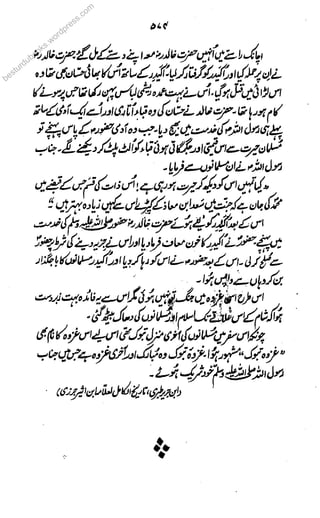 besturdubooks.wordpress.com
۵۷۴
اچانک راستے میں انہیں حضرت خالدؓ مع اپنے دستے کے مل گئے حضرت خالدؓ
نے ان پر حملہ کیا اور اکیدر کو گرفتار کر لیا۔ اکیدر کے ساتھ اس کا بھائی حسان بھی تھا وہ
اس لڑائی میں قتل ہو گیا۔ اس نے بہت عمدہ ریشمی لباس پہن رکھا تھا جس پر سونے کا
کام ہو رہا تھا۔ حضرت خالدؓ نے حسان کی وہ قباء اتار لی اور اسے ایک آدمی کے ساتھ
پہلے ہی رسول اللہ ﷺ کی خدمت میں بھیج دیا۔ جب وہ آدمی حضورؐ کے پاس پہنچے تو
مسلمان حیرت سے اس قیمتی اور بھڑکیلی قباء کو الٹ پلٹ کر دیکھنے لگے۔ جناب
رسول اللہ ﷺ نے ان مسلمانوں سے فرمایا۔
"کیا تمہیں اس کو دیکھ کر حیرت ہو رہی ہے! اس ذات کی قسم جس کے قبضے میں
محمدؐ کی جان ہے کہ جنت میں سعد ابن معاذ کے کپڑے اس سے کہیں زیادہ بہتر ہیں"
اس کے بعد اکیدر کو لئے ہوئے حضرت خالدؓ حضور ﷺ کی خدمت
میں پہنچے حضورؐ نے اکیدر کا خون معاف فرما دیا اور اس نے جزیہ دینے کی شرط پر حضورؐ
سے صلح کر لی۔ اس کے بعد حضورؐ نے اس کو رہا کر دیا اور اکیدر مسلمانوں کا باجگذار
بن کر وہاں سے واپس ہوا۔
اس طرح اس غزوہ میں جنگ تو نہیں ہوئی مگر اس سے یہ فائدہ بہت زبردست
ہوا کہ شام کے اس علاقے تک اسلام اور مسلمانوں کی دھاک بیٹھ گئی۔
چونکہ اس سفر میں مسلمانوں کی آخری منزل تبوک تھی اس لئے اس غزوہ کا نام بھی
"غزوہ تبوک" مشہور ہوا۔ غزوہ تبوک وہ مبارک اور آخری غزوہ ہے جس میں جناب
رسول اللہ ﷺ خود شریک ہوئے۔
(ابن جریر طبری، تاریخ الکامل لعلامہ ابن اثیر جزری)